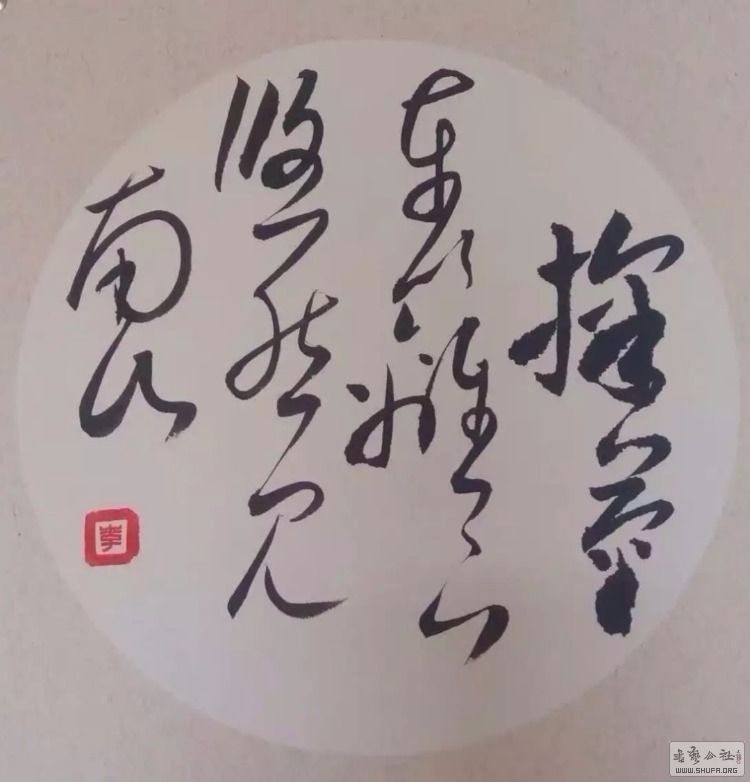 採菊
東籬下
悠然見
南山
李
书艺公社
WWW.SHUFA.ORG